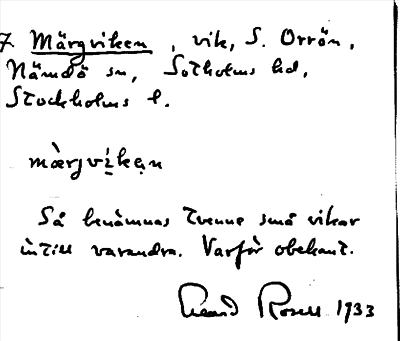 7 Märgviken, vik, S. Orrön,
Nämdö sn, Sotholms hd,
Stockholms l.
mærgvikęn
Så benämnas tvenne små vikar
intill varandra. Varför obekant.
1933